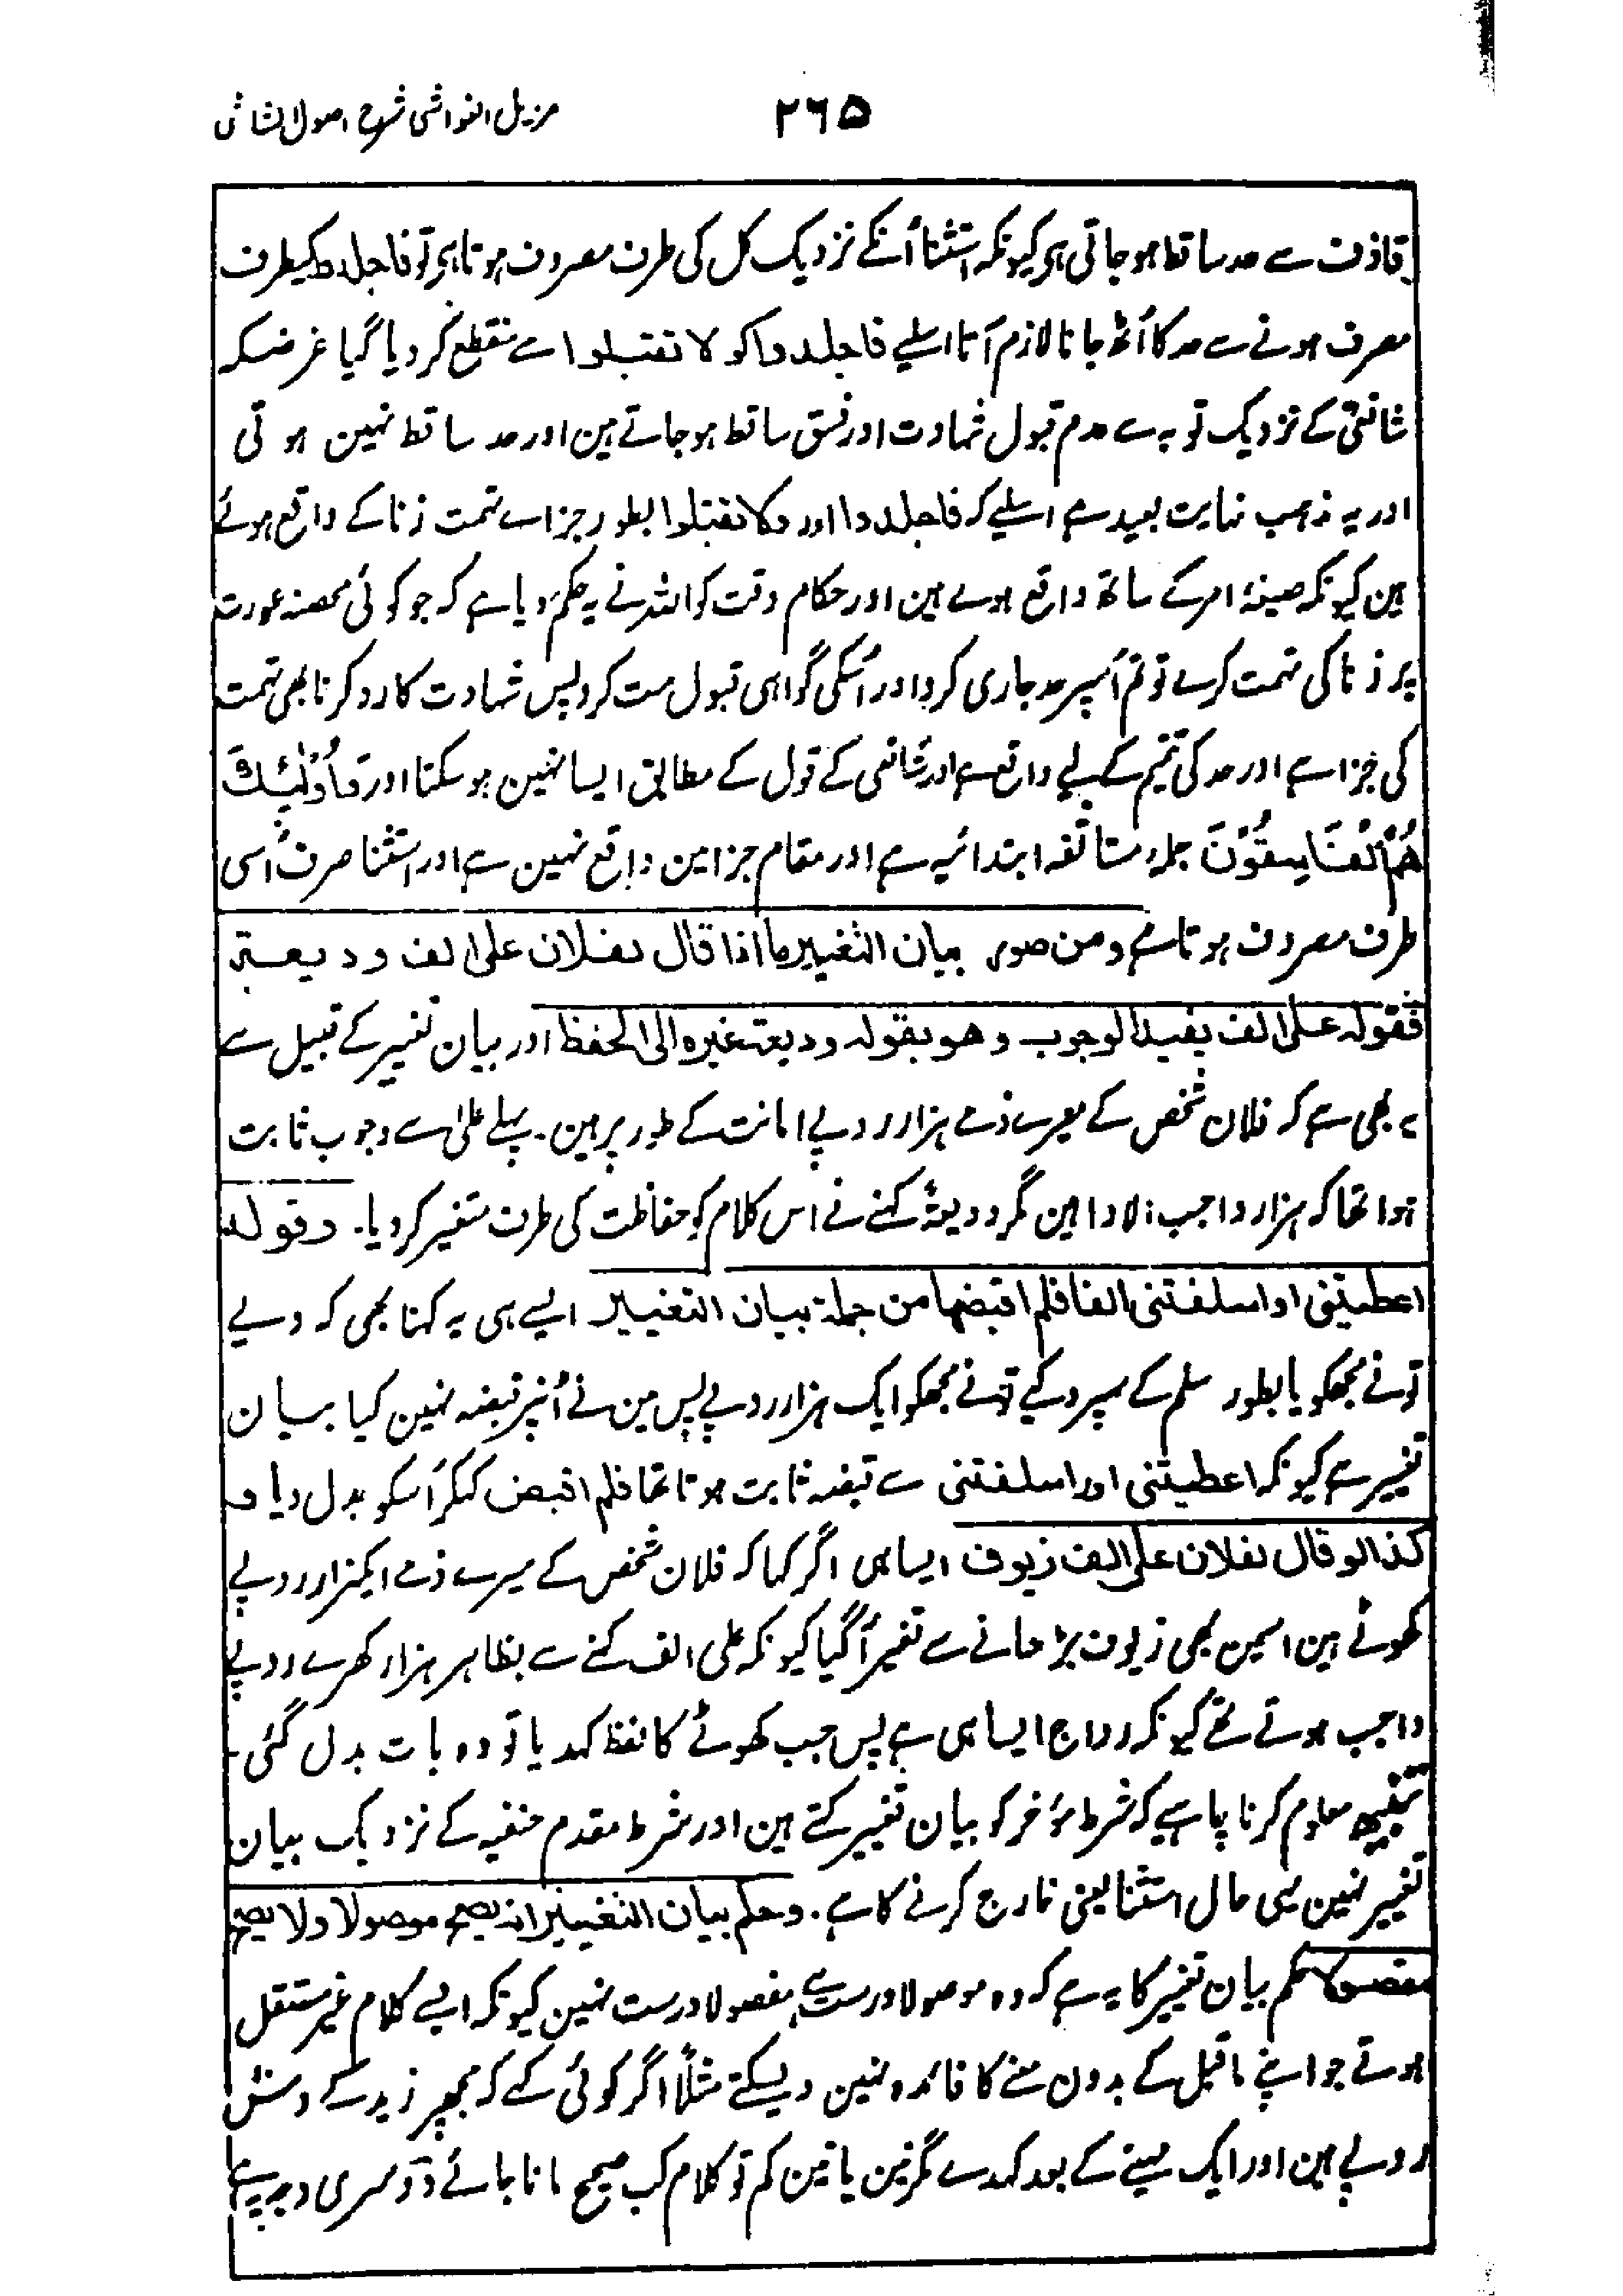 مزیل الغواشی شرح اصول الشاشی
۲۶۵
قاذف سے حد ساقط ہو جاتی ہے کیونکہ استثنا اُنکے نزدیک کل کی طرف مصروف ہوتا ہے تو فاجلدوا کیطرف
مصرف ہونے سے حد کا اُٹھ جانا لازم آتا اسلیے فاجلدوا کو لا تقبلوا سے منقطع کر دیا گیا غرضکہ
شافعیؒ کے نزدیک توبہ سے عدم قبول شہادت اور فسق ساقط ہو جاتے ہین اور حد ساقط نہین ہوتی
اور یہ مذہب نہایت بعید ہے اسلیے کہ فاجلدوا اور ولا تقبلوا بطور جزا سے تہمت زنا کے واقع ہوئے
ہین کیونکہ صیغۂ امر کے ساتھ واقع ہوے ہین اور حکام وقت کو اللہ نے یہ حکم دیا ہے کہ جو کوئی محصنہ عورت
پر زنا کی تہمت کرے تو تم اُسپر حد جاری کرو اور اُسکی گواہی قبول مت کرو پس شہادت کا رد کرنا بھی تہمت
کی جزا ہے اور حد کی تتمیم کے لیے واقع ہے اور شافعی کے قول کے مطابق ایسا نہین ہو سکتا اور وَاُولٰئِكَ
هُمُ الْفَاسِقُوْنَ جملہ مستانفہ ابتدائیہ ہے اور مقام جزا مین واقع نہین ہے اور استثنا صرف اُسی
طرف مصروف ہوتا ہے ومن صور بیان التغییر ما اذا قال لفلان علی الف ودیعۃ
فقولہ علی الف یفید الوجوب وھو بقولہ ودیعۃ غیرہ الی الحفظ اور بیان تغییر کے قبیل سے
یہ بھی ہے کہ فلان شخص کے میرے ذمے ہزار روپے امانت کے طور پر ہین۔ پہلے علیٰ سے وجوب ثابت
ہوا تھا کہ ہزار واجب الادا ہین مگر ودیعۃً کہنے نے اس کلام کو حفاظت کی طرف متغیر کر دیا۔ وقولہ
اعطیتنی او اسلفتنی الفا فلم اقبضہا من جملۃ بیان التغییر ایسے ہی یہ کہنا بھی کہ دیے
تونے مجھکو یا بطور سلم کے سپرد کیے تونے مجھکو ایک ہزار روپے پس مین نے اُنپر قبضہ نہین کیا بیان
تغییر ہے کیونکہ اعطیتنی اور اسلفتنی سے قبضہ ثابت ہوتا تھا فلم اقبض کہکر اُسکو بدل دیا و
کذا لو قال لفلان علی الف زیوف ایسا ہی اگر کہا کہ فلان شخص کے میرے ذمے ایکہزار روپے
کھوٹے ہین اسمین بھی زیوف بڑھانے سے تغییر آ گیا کیونکہ علی الف کہنے سے بظاہر ہزار کھرے روپے
واجب ہوتے تھے کیونکہ رواج ایسا ہی ہے پس جب کھوٹے کا لفظ کہدیا تو وہ بات بدل گئی۔
تنبیہ معلوم کرنا چاہیے کہ شرط مؤخر کو بیان تغییر کہتے ہین اور شرط مقدم حنفیہ کے نزدیک بیان
تغییر نہین یہی حال استثنا یعنی خارج کرنے کا ہے۔ وحکم بیان التغییر انہ یصح موصولا ولا یصح
مفصولا حکم بیان تغییر کا یہ ہے کہ وہ موصولا درست ہے مفصولا درست نہین کیونکہ ایسے کلام غیر مستقل
ہوتے جو اپنے ماقبل کے بدون معنے کا فائدہ نہین دیسکتے مثلاً اگر کوئی کہے کہ مجھپر زید کے دسنل
روپے ہین اور ایک مہینے کے بعد کہدے مگر تین یا تین کم تو کلام کب صحیح مانا جائے دوسری وجہ یہ ہے